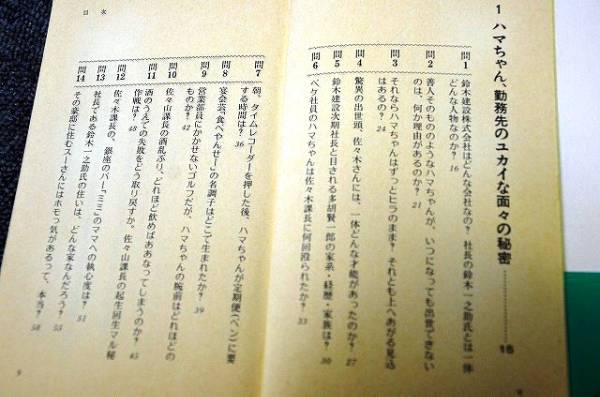 1 ハマちゃん、勤務先のユカイな面々の秘密…………15
問1 鈴木建設株式会社はどんな会社なの? 社長の鈴木一之助氏とは一体
どんな人物なのか? 16
問2 善人そのもののようなハマちゃんが、いつになっても出世できない
のは、何か理由があるのか? 21
問3 それならハマちゃんはずっとヒラのまま? それとも上へあがる見込
はあるの? 24
問4 驚異の出世頭、佐々木さんには、一体どんな才能があったのか? 27
問5 鈴木建設次期社長と目される多胡賢一郎の家系・経歴・家族は? 30
問6 ペケ社員のハマちゃんは佐々木課長に何回殴られたか? 33
目次
問7 朝、タイムレコーダーを押した後、ハマちゃんが定期便(ベン)に要
する時間は? 36
問8 宴会芸〝食べやんせ〜〟の名調子はどこで生まれたか? 39
問9 営業部員にかかせないゴルフだが、ハマちゃんの腕前はどれほどの
ものか? 42
問10 佐々山課長の酒乱ぶり、どれほど飲めばああなってしまうのか? 45
問11 酒のうえでの失敗をどう取り戻すか。佐々山課長の起生回生マル秘
作戦は? 48
問12 佐々木課長の、銀座のバー「ミミ」のママへの執心度は? 51
問13 社長である鈴木一之助の住いは、どんな家なんだろう? 55
問14 その豪邸に住むスーさんにはホモっ気があるって、本当? 58
9